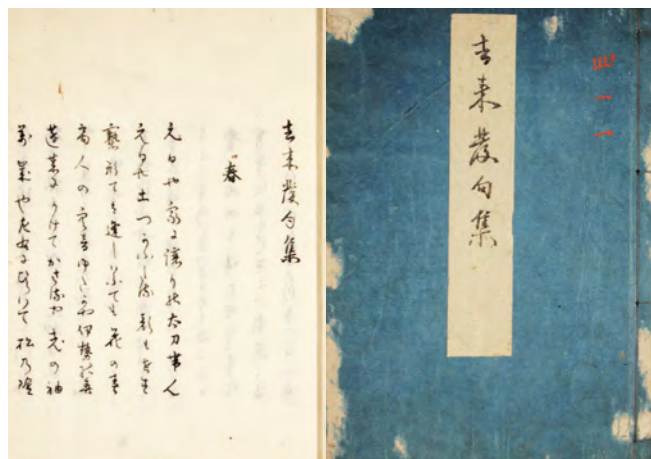 去来發句集
四一一
去来發句集
春
元日や家に譲りの太刀帯ん
元日や土つかふたる顔もせす
ても花の春
人の伊勢
蓬莱にかけてかさるや老の袖
萬歳や左右にひらいて松の陰